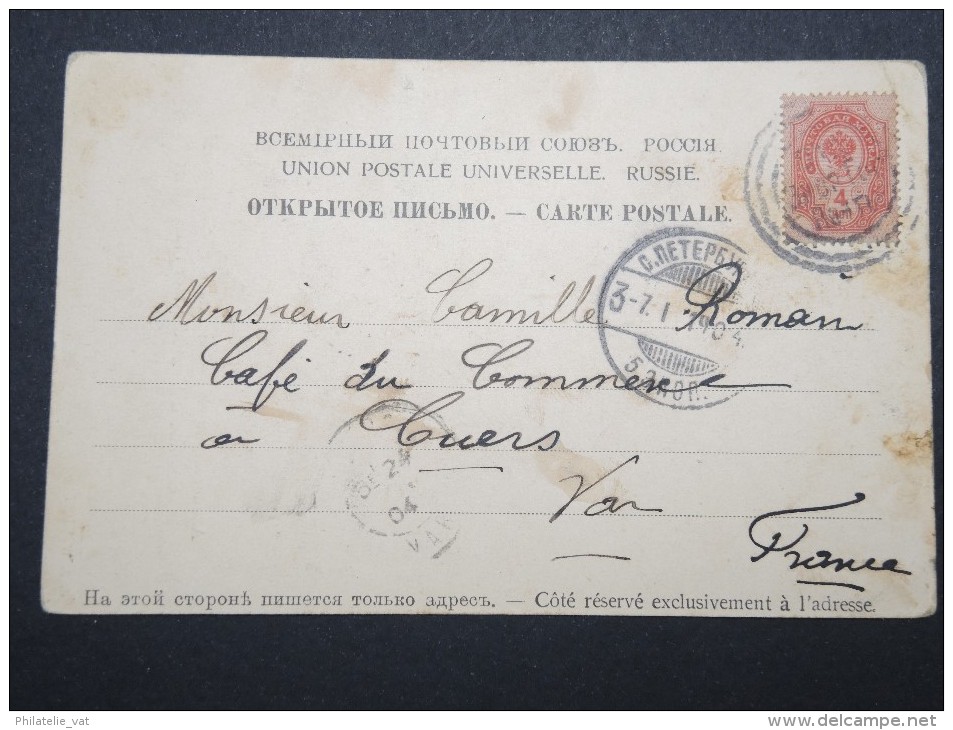 ВСЕМІРНЫЙ ПОЧТОВЫЙ СОЮЗЪ. РОССІЯ.
UNION POSTALE UNIVERSELLE. RUSSIE.
ОТКРЫТОЕ ПИСЬМО. — CARTE POSTALE.
4
С. ПЕТЕРБУ
3-7. I 1904.
Monsieur Camille Roman
Café du Commerce
a Cuers
Var
France
24
04
VAR
На этой сторонѣ пишется только адресъ. — Côté réservé exclusivement à l'adresse.
Philatelie_vat
www.delcampe.net